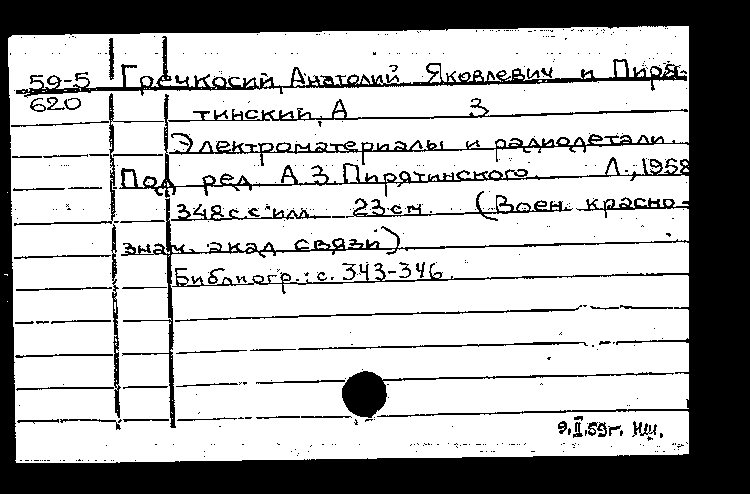 59-5 Гречкосий, Анатолий Яковлевич и Пиря-
620 тинский, А З
Электроматериалы и радиодетали.
Под ред. А.З.Пирятинского. Л., 1958
348с.с илл. 23см. (Воен. красно-
знам. акад. связи).
Библиогр.: с. 343-346.
9.II.59г.